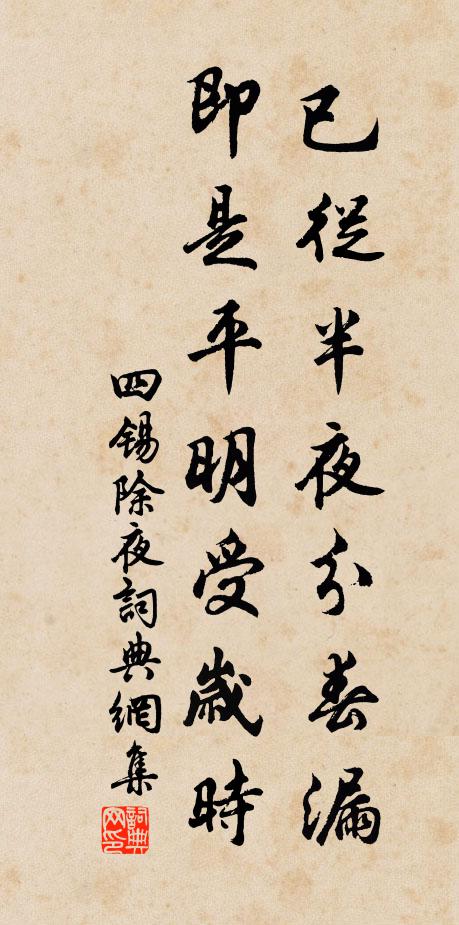 已從半夜分春漏
即是平明受歲時
四錫除夜詞典網集
詞典网印